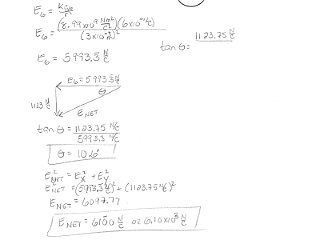 E₆ = Kq/r²
E₆ = (8.99x10⁹ Nm²/C²)(6x10⁻⁹C) / (3x10⁻²)²
tan θ = 1123.75 N/C
E₆ = 5993.3 N/C
E₆ = 5993.3 N/C
θ
1123 N/C
E NET
tan θ = 1123.75 N/C / 5993.3 N/C
θ = 10.6°
E²NET = E²x + E²y
E²NET = (5993.3 N/C)² + (1123.75 N/C)²
E NET = 6097.77
E NET = 6100 N/C or 6.10x10³ N/C